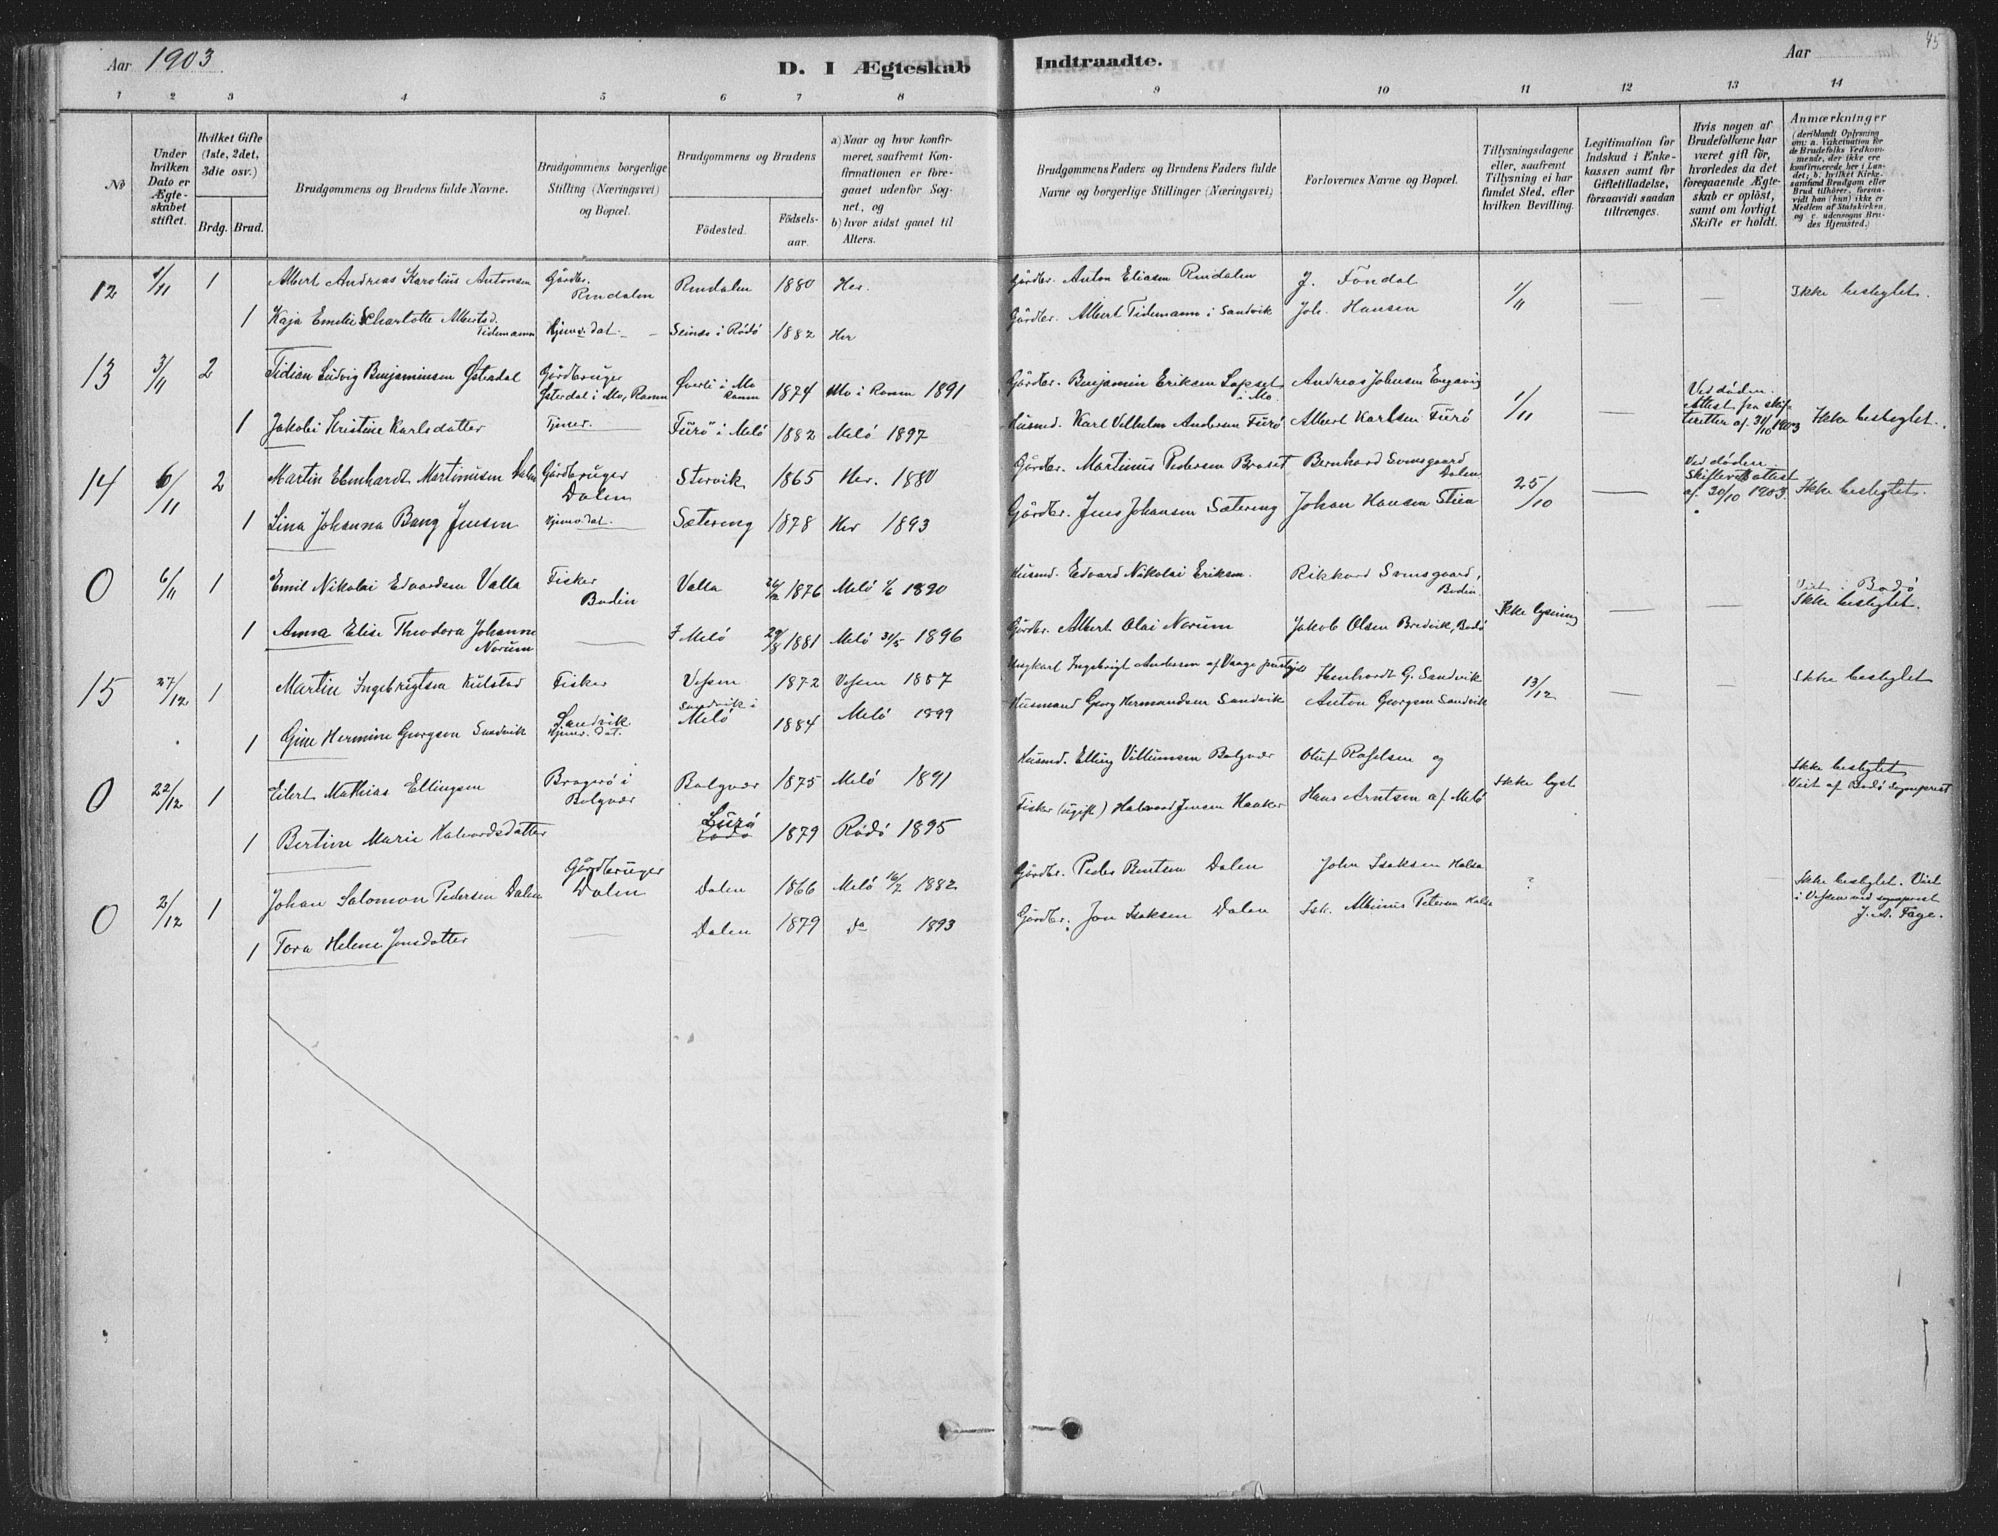 Aar 1903
D. I Ægteskab Indtraadte.
Aar
45
1 2 3 4 5 6 7 8 9 10 11 12 13 14
No
Under hvilken Dato er Ægteskabet stiftet.
Hvilket Gifte (1ste, 2det, 3die osv.)
Brdg. Brud.
Brudgommens og Brudens fulde Navne.
Brudgommens borgerlige Stilling (Næringsvei) og Bopæl.
Brudgommens og Brudens
Födested. Födselsaar.
a) Naar og hvor konfirmeret, saafremt Konfirmationen er foregaaet udenfor Sognet, og
b) hvor sidst gaaet til Alters.
Brudgommens Faders og Brudens Faders fulde Navne og borgerlige Stillinger (Næringsvei)
Forlovernes Navne og Bopæl.
Tillysningsdagene eller, saafremt Tillysning ei har fundet Sted, efter hvilken Bevilling.
Legitimation for Indskud i Enkekassen samt for Giftetilladelse, forsaavidt saadan tiltrænges.
Hvis nogen af Brudefolkene har været gift før, hvorledes da det foregaaende Ægteskab er oplöst, samt om lovligt Skifte er holdt.
Anmærkninger
(deriblandt Oplysning om: a. Vakcination for de Brudefolks Vedkommende, der ikke ere konfirmerede her i Landet; b. hvilket Kirkesamfund Brudgom eller Brud tilhörer, forsaavidt han (hun) ikke er Medlem af Statskirken, og c. udensogns Brudes Hjemsted.)
12 1/11 1 Albert Andreas Karolius Antonsen Gårdbr. Rendalen Rendalen 1880 Her. Gårdbr. Anton Eliasen Rendalen J. Föndal 1/11 — — Ikke beslegtet.
1 Kaja Emelie Scharlotte Albertsd. Tidemann Hjemv. dat. — Selnæs i Rödö 1882 Her Gårdbr. Albert Tidemann i Sandvik Joh. Hansen
13 3/11 2 Tidian Ludvig Benjaminsen Østerdal Gårdbruger Østerdal i Mo, Ranen Øverli i Mo Ranen 1874 Mo i Ranen 1891 Gårdbr. Benjamin Eriksen i Mo. Andreas Johnsen Engavig 1/11 — Ved døden. Attest fra skifteretten af 31/10 1903 Ikke beslegtet.
1 Jakobi Kristine Karlsdatter Tjener. Furö i Melö 1882 Melö 1897 Husmd. Karl Vilhelm Andersen Furö Albert Karlsen Furö
14 6/11 2 Martin Ebenhardt Martinusen Dalen Gårdbruger Dalen Storvik 1865 Her. 1880 Gårdbr. Martinus Pedersen Braset Bernhard Svensgaard Dalen 25/10 — Ved døden Skifteretsattest af 30/10 1903. Ikke beslegtet.
1 Lina Johanna Bang Jensen Hjemv. dat. Sætering 1878 Her 1893 Gårdbr. Jens Johansen Sætering Johan Hansen Stien
0 6/11 1 Emil Nikolai Edvardsen Valla Fisker Bodin Valla 26/2 1876 Melö 1/6 1890 Husmd. Edvard Nikolai Eriksen. Rikkard Svensgaard, Bodin Ikke lysning — — Viet i Bodö Ikke beslegtet.
1 Anna Elise Theodora Johanne Norum — I Melö 29/8 1881 Melö 31/5 1896 Gårdbr. Albert Olai Norum Jakob Olsen Bredvik, Bodö
15 27/12 1 Martin Ingebrigtsen Kulstad Fisker Vefsen 1872 Vefsen 1887 Ungkarl Ingebrigt Andersen af Vaage Ebenhardt G. Sandvik 13/12 — — Ikke beslegtet
1 Gine Hermine Georgsen Sandvik Sandvik Hjemv. dat. Sandvik i Melö 1884 Melö 1899 Husmand Georg Hermandsen Sandvik Anton Georgsen Sandvik
0 22/12 1 Eilert Mathias Ellingsen i Bolgvær Bolgvær 1875 Melö 1891 Husmd. Elling Villumsen Bolgvær Oluf Rafelsen og Ikke lyst Ikke beslegtet Viet af Bodö Sogneprest
1 Bertine Marie Halvordsdatter Lurö Rödö 1879 Rödö 1895 Fisker (ugift) Halvord Jensen Haaker Hans Arntsen af Melö
0 2/12 1 Johan Salomon Pedersen Dalen Gårdbruger Dalen Dalen 1866 Melö 16/7 1882 Gårdbr. Peder Bentsen Dalen John Isaksen Halsa ? Ikke beslegtet. Viet i Vefsen ved sogneprest J. A. Fage.
1 Tora Helene Jonsdatter — Dalen 1879 do 1893 Gårdbr. Jon Isaksen Dalen Albinus Petersen Halsa